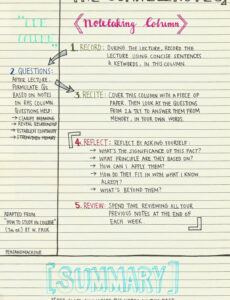 THE CORNELL NOTES
"CUE COLUMN"
Notetaking Column
1. RECORD: DURING THE LECTURE, RECORD THE
LECTURE USING CONCISE SENTENCES
& KEYWORDS, IN THIS COLUMN.
2. QUESTIONS:
AFTER LECTURE,
FORMULATE Qs
BASED ON NOTES
IN RHS COLUMN
QUESTIONS HELP:
→ CLARIFY MEANING
→ REVEAL RELATIONSHIP
→ ESTABLISH CONTINUITY
→ STRENGTHEN MEMORY
3. RECITE: COVER THIS COLUMN WITH A PIECE OF
PAPER. THEN LOOK AT THE QUESTIONS
FROM 2 & TRY TO ANSWER THEM FROM
MEMORY, IN YOUR OWN WORDS.
4. REFLECT: REFLECT BY ASKING YOURSELF:
→ WHAT'S THE SIGNIFICANCE OF THIS FACT?
→ WHAT PRINCIPLE ARE THEY BASED ON?
→ HOW CAN I APPLY THEM?
→ HOW DO THEY FIT IN WITH WHAT I KNOW
ALREADY?
→ WHAT'S BEYOND THEM?
5. REVIEW: SPEND TIME REVIEWING ALL YOUR
PREVIOUS NOTES AT THE END OF
EACH WEEK.
ADAPTED FROM
"HOW TO STUDY IN COLLEGE"
BY W. PAUK
[SUMMARY]